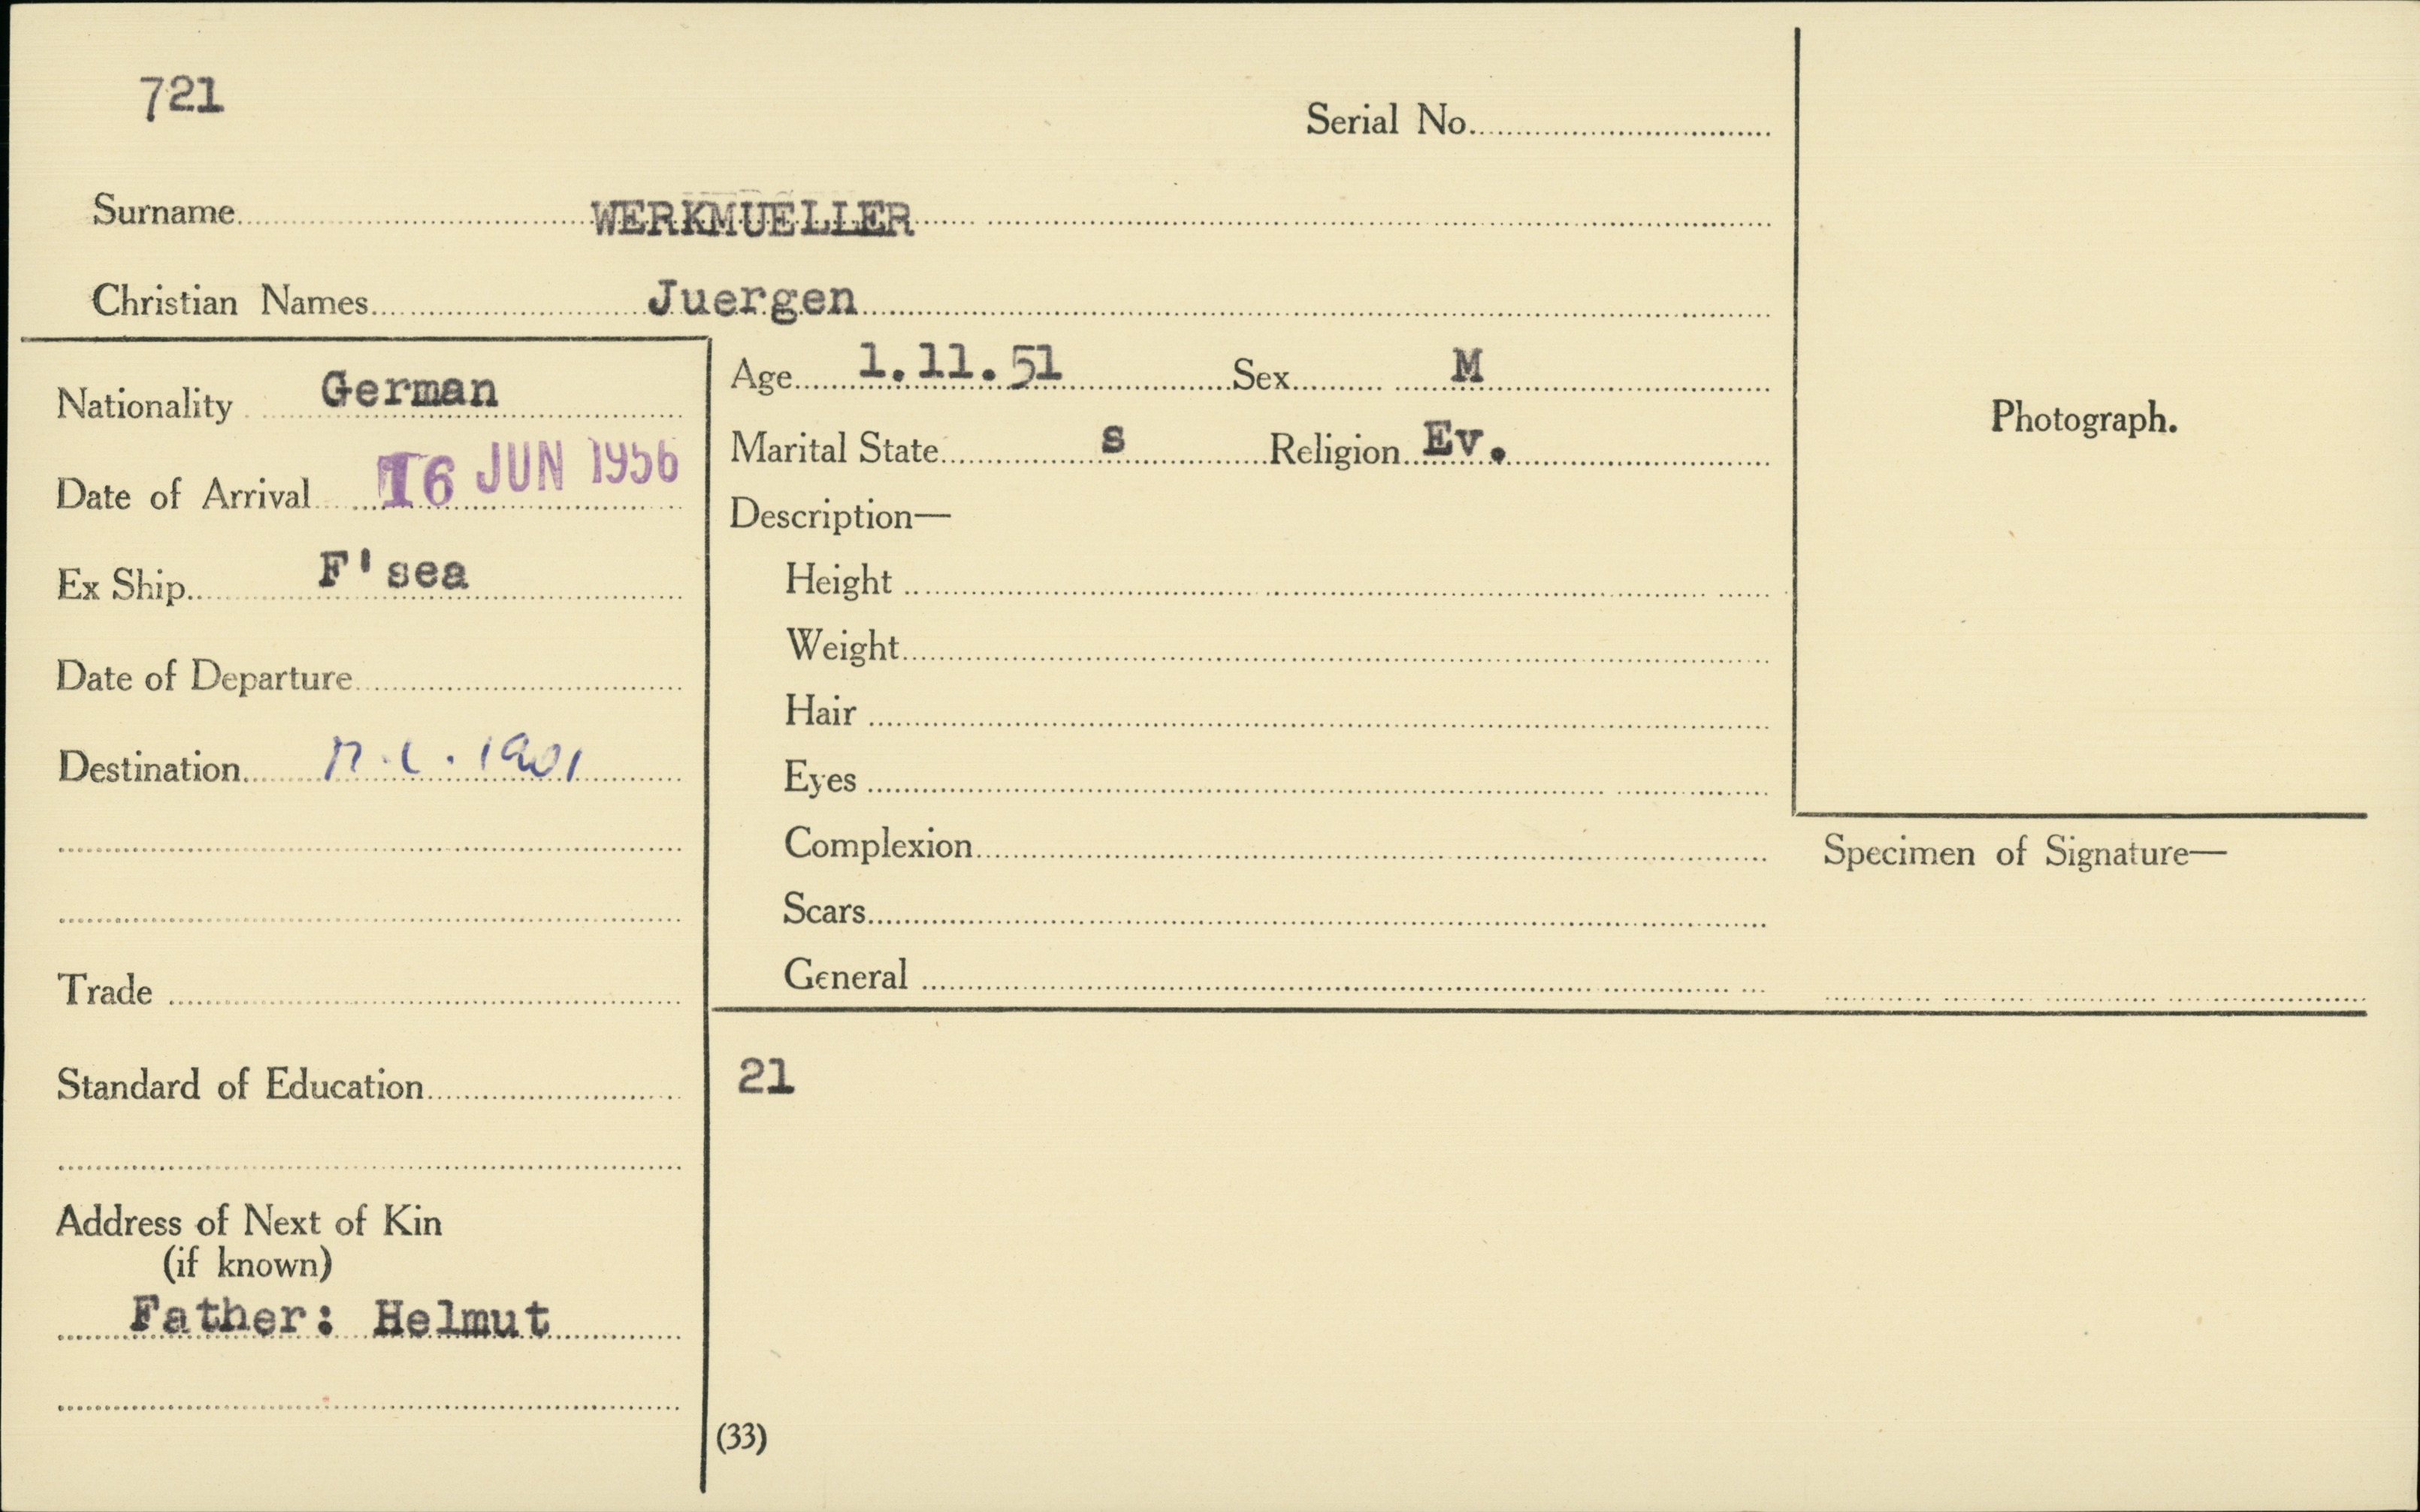 721
Serial No.
Surname WERKMUELLER
Christian Names Juergen
Nationality German
Date of Arrival 16 JUN 1956
Ex Ship F'sea
Date of Departure
Destination
Trade
Standard of Education
Address of Next of Kin
(if known)
Father: Helmut
Age 1.11.51 Sex M
Marital State s Religion Ev.
Description—
Height
Weight
Hair
Eyes
Complexion
Scars
General
21
(33)
Photograph.
Specimen of Signature—